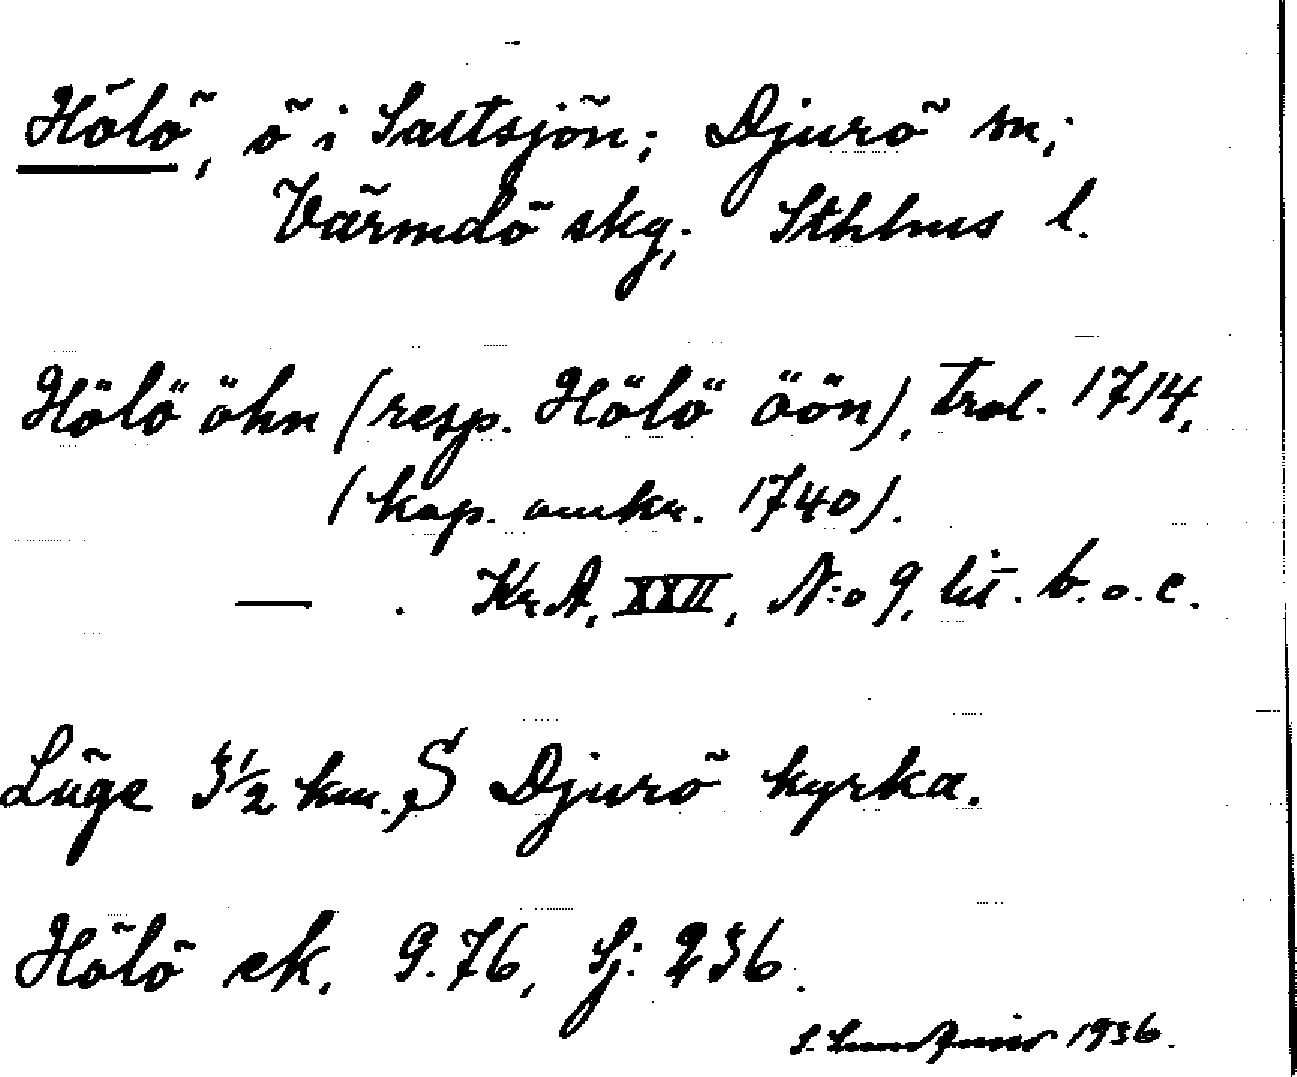 Hölö, ö i Saltsjön; Djurö sn;
Värmdö skg; Sthlms l.
Hölö öhn (resp. Hölö öön), trol. 1714,
(kop. omkr. 1740).
— . Kr.A, XXII, N:o 9, lit. b. o. c.
Läge 3½ km. S Djurö kyrka.
Hölö ek. 9.76, Sj: 236.
1936.